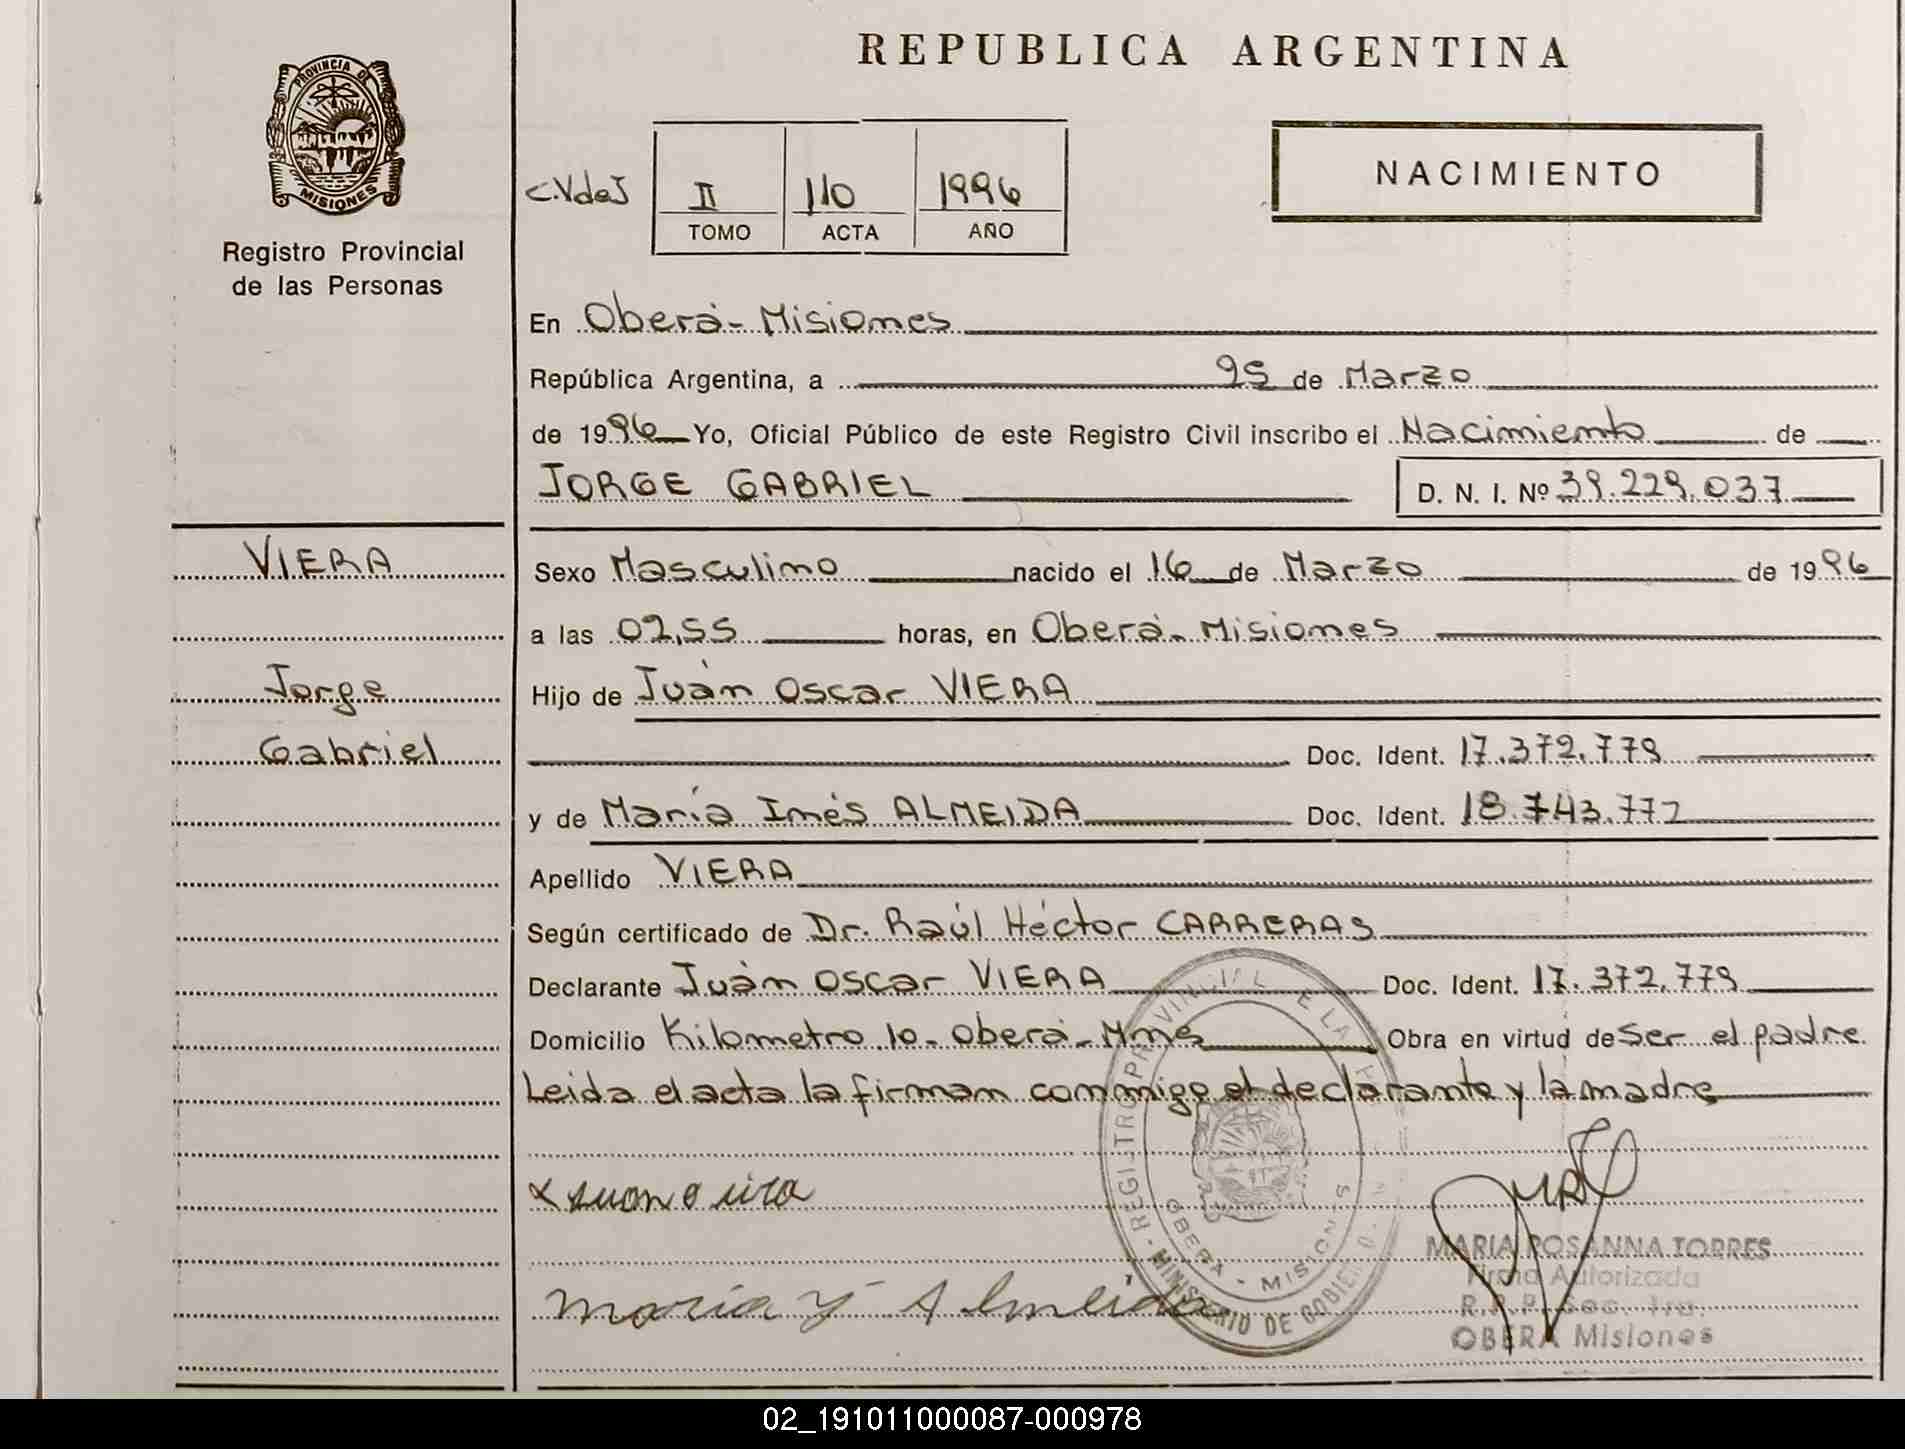 REPUBLICA ARGENTINA
PROVINCIA DE
MISIONES
Registro Provincial
de las Personas
C.VdeJ
II 110 1996
TOMO ACTA AÑO
NACIMIENTO
En Oberá - Misiones
República Argentina, a 25 de Marzo
de 1996 Yo, Oficial Público de este Registro Civil inscribo el Nacimiento de
JORGE GABRIEL D. N. I. Nº 39.229.037
VIERA
Jorge
Gabriel
Sexo Masculino nacido el 16 de Marzo de 1996
a las 02,55 horas, en Oberá - Misiones
Hijo de Juán Oscar VIERA
Doc. Ident. 17.372.779
y de María Inés ALMEIDA Doc. Ident. 18.743.772
Apellido VIERA
Según certificado de Dr. Raúl Héctor CARRERAS
Declarante Juán Oscar VIERA Doc. Ident. 17.372.779
Domicilio Kilometro 10 - Oberá - Mnes Obra en virtud de ser el padre
Leida el acta la firman conmigo el declarante y la madre
REGISTRO PROVINCIAL DE LA
MINISTERIO DE GOBIERNO
OBERA - MISIONES
Maria Y Almeida
MARIA ROSANNA TORRES
Firma Autorizada
R.P.P. Sec. 1ra.
OBERA Misiones
02_191011000087-000978